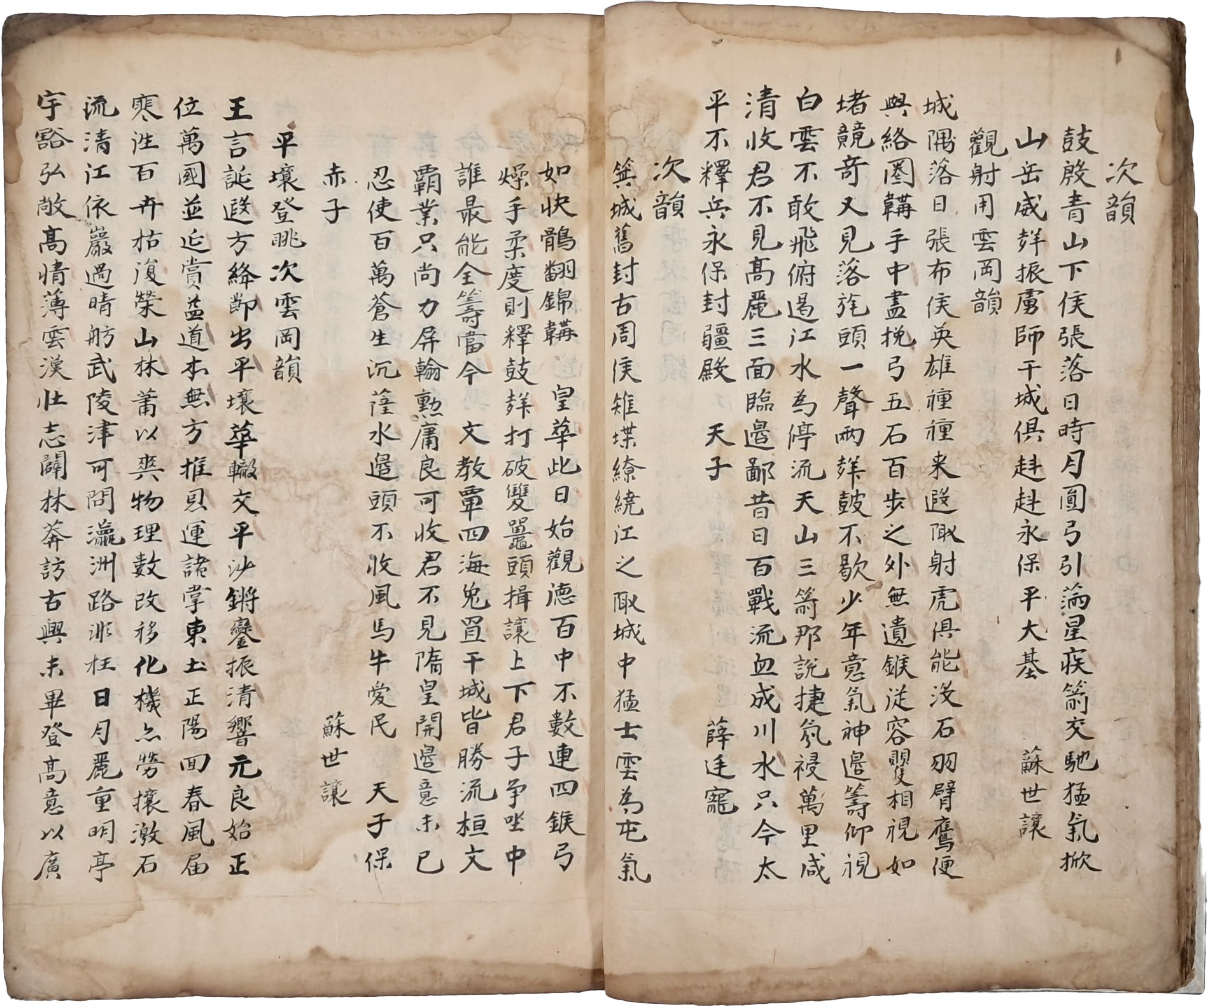 次韻
鼓殷青山下侯張落日時月圓弓引滿星疾箭交馳猛氣掀
山岳威聲振虜師干城俱赳赳永保平大基 蘇世讓
觀射用雲岡韻
城隅落日張布侯英雄種種来遐陬射虎俱能沒石羽臂鷹便
與絡圈韝手中盡挽弓五石百步之外無遺鍭從容矍相視如
堵競奇又見落旄頭一聲兩聲鼓不歇少年意氣神邊籌仰視
白雲不敢飛俯遏江水為停流天山三箭那說捷氛祲萬里咸
清收君不見高麗三面臨邊鄙昔日百戰流血成川水只今太
平不釋兵永保封疆殿 天子 薛廷寵
次韻
箕城舊封古周侯雉堞繚繞江之陬城中猛士雲為屯氣
如快鶻翻錦韝 皇華此日始觀德百中不數連四鍭弓
燥手柔度則釋鼓聲打破雙鼉頭揖讓上下君子爭坐中
誰最能全籌當今 文教覃四海兔罝干城皆勝流桓文
霸業只尚力屏翰勲庸良可收君不見隋皇開邊意未已
忍使百萬蒼生沉薩水邊頭不收風馬牛愛民 天子保
赤子 蘇世讓
平壤登眺次雲岡韻
王言誕遐方絳節出平壤華轍交平沙鏘鑾振清響元良始正
位萬國並延賞蓋道本無方推恩運諸掌東土正陽回春風届
寒涯百卉枯復榮山林蕭以爽物理數改移化機亦勞攘漱石
流清江依巖過晴舫武陵津可問瀛洲路非枉日月麗重明亭
宇豁弘敞高情薄雲漢壮志闢林莽訪古興未畢登高意以廣